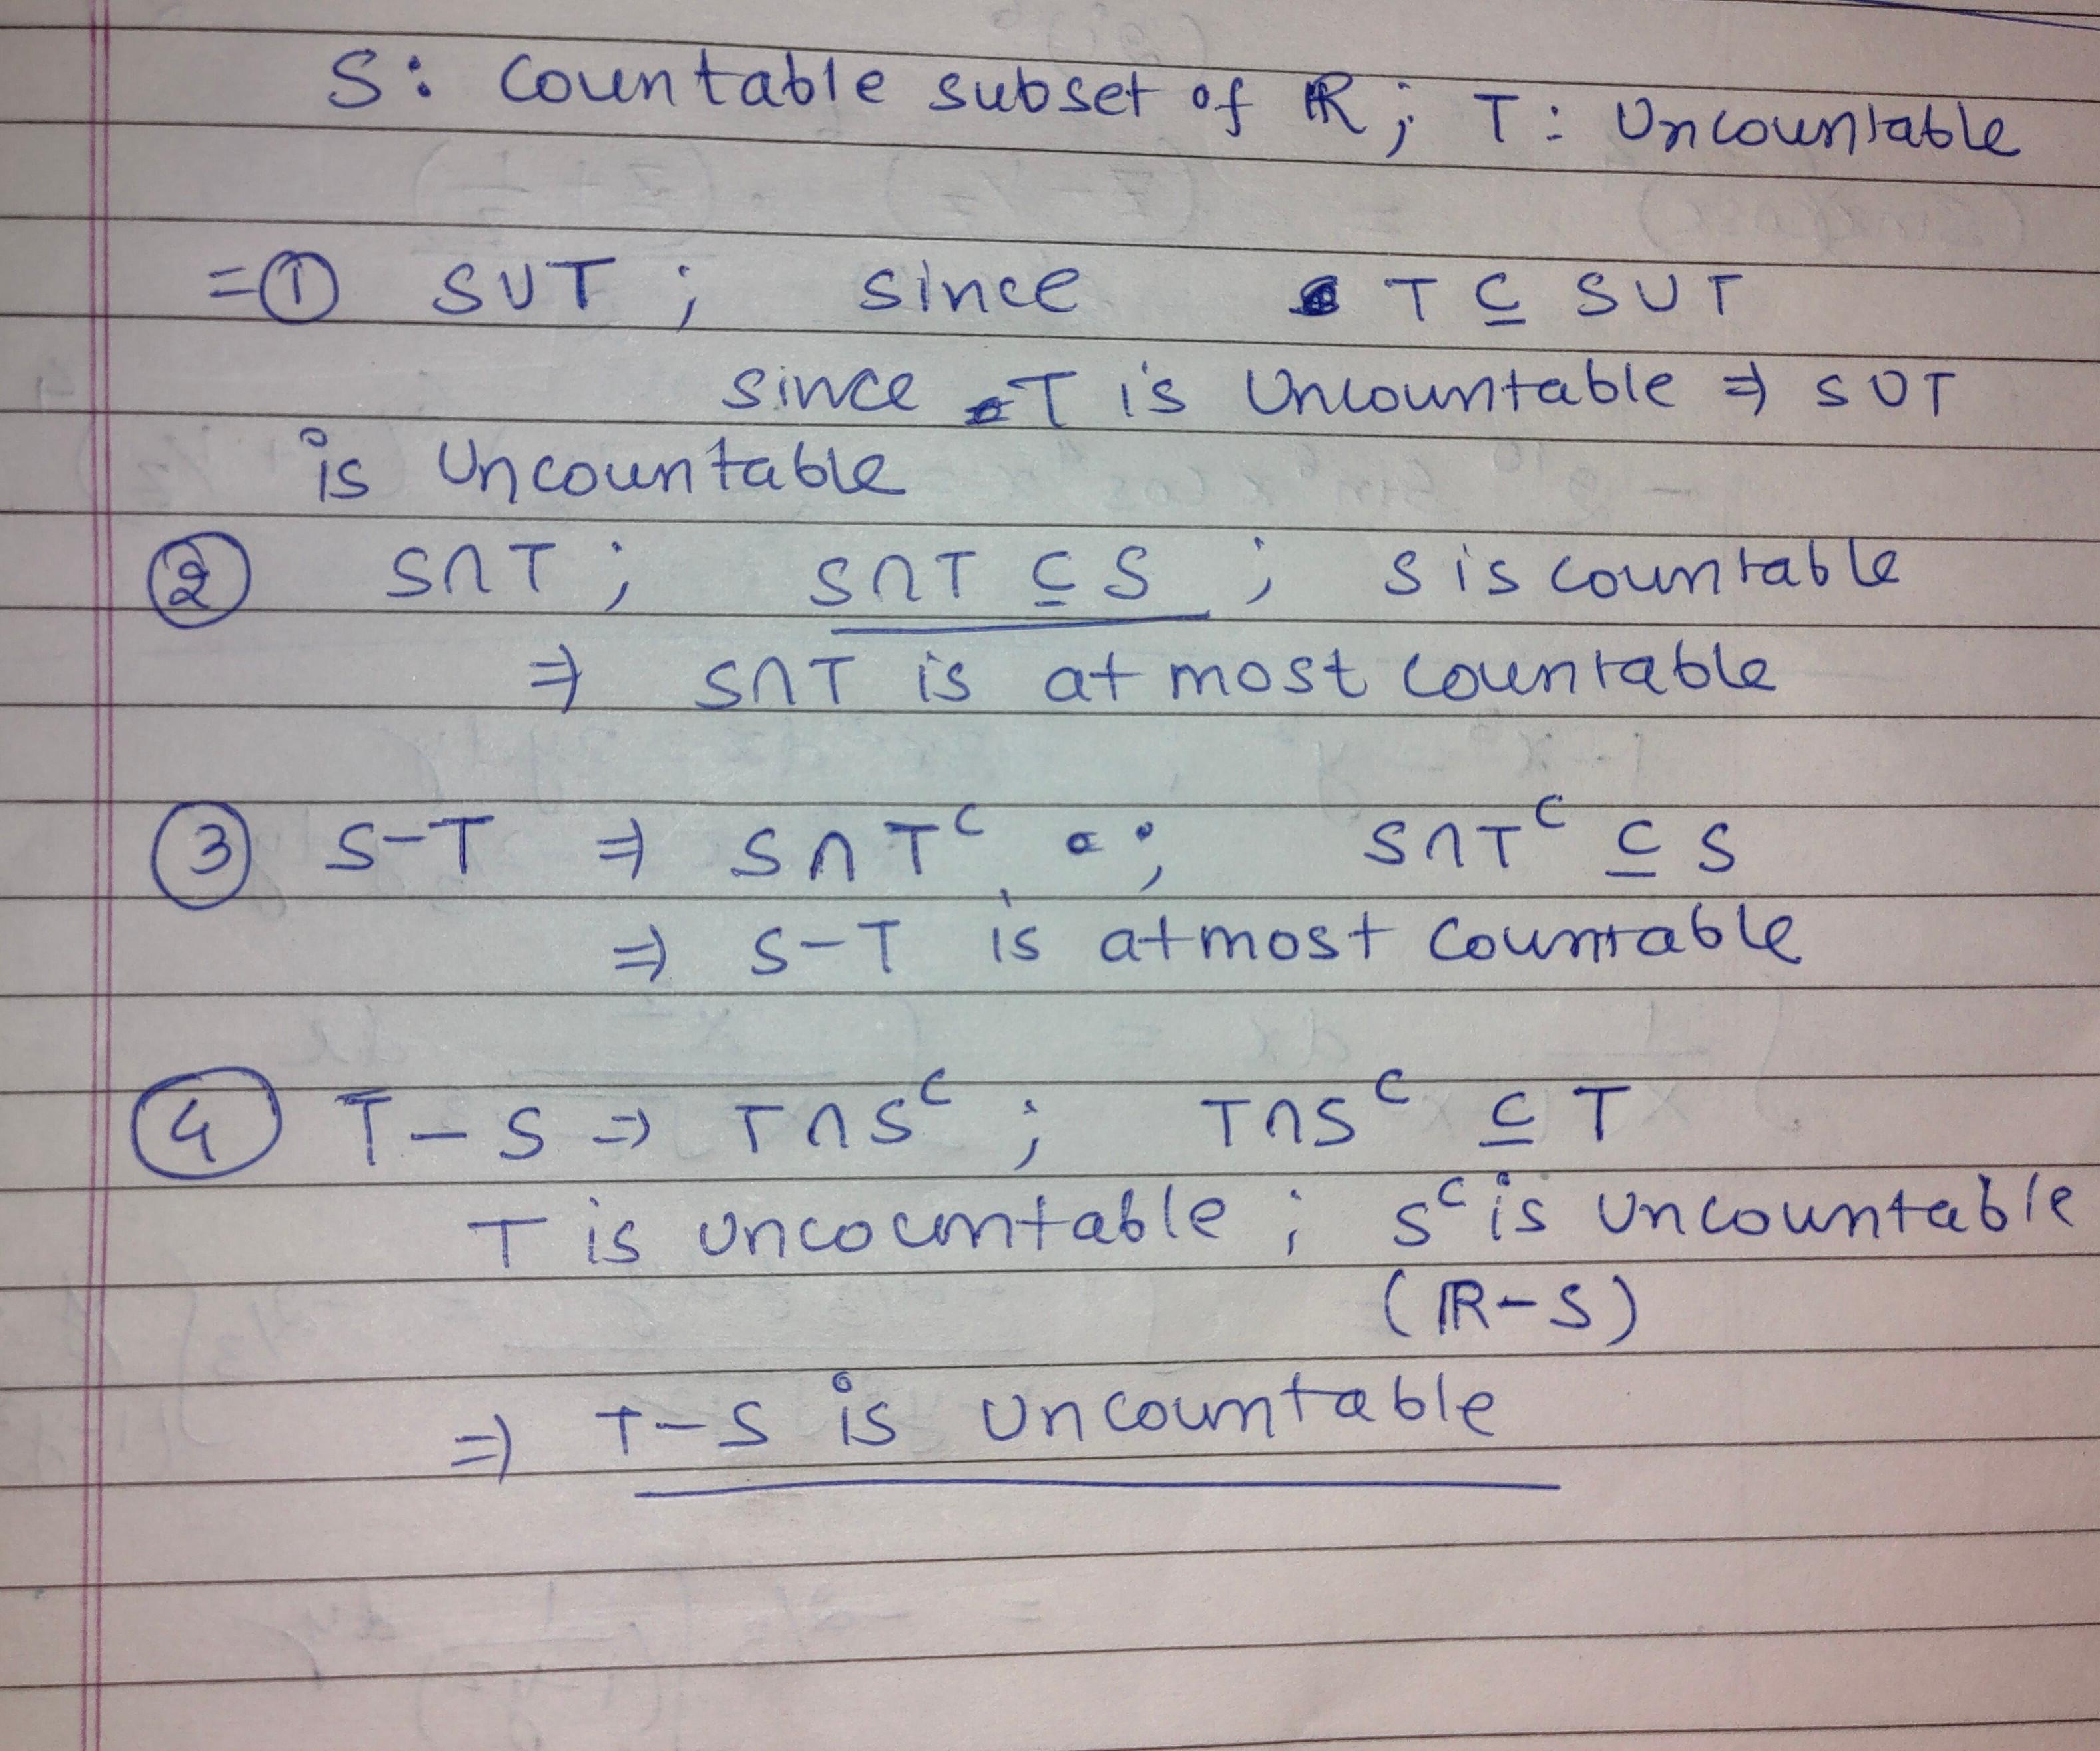 S: Countable subset of ℝ ; T: Uncountable
=① S∪T ; since T ⊆ S∪T
since T is Uncountable ⇒ S∪T
is Uncountable
② S∩T ; S∩T ⊆ S ; S is countable
⇒ S∩T is at most countable
③ S-T ⇒ S∩Tᶜ ; S∩Tᶜ ⊆ S
⇒ S-T is atmost Countable
④ T-S ⇒ T∩Sᶜ ; T∩Sᶜ ⊆ T
T is uncountable ; Sᶜ is Uncountable
(ℝ-S)
⇒ T-S is Uncountable